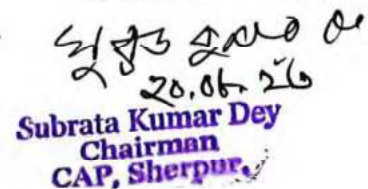 সুব্রত কুমার দে
20.06.26
Subrata Kumar Dey
Chairman
CAP, Sherpur.